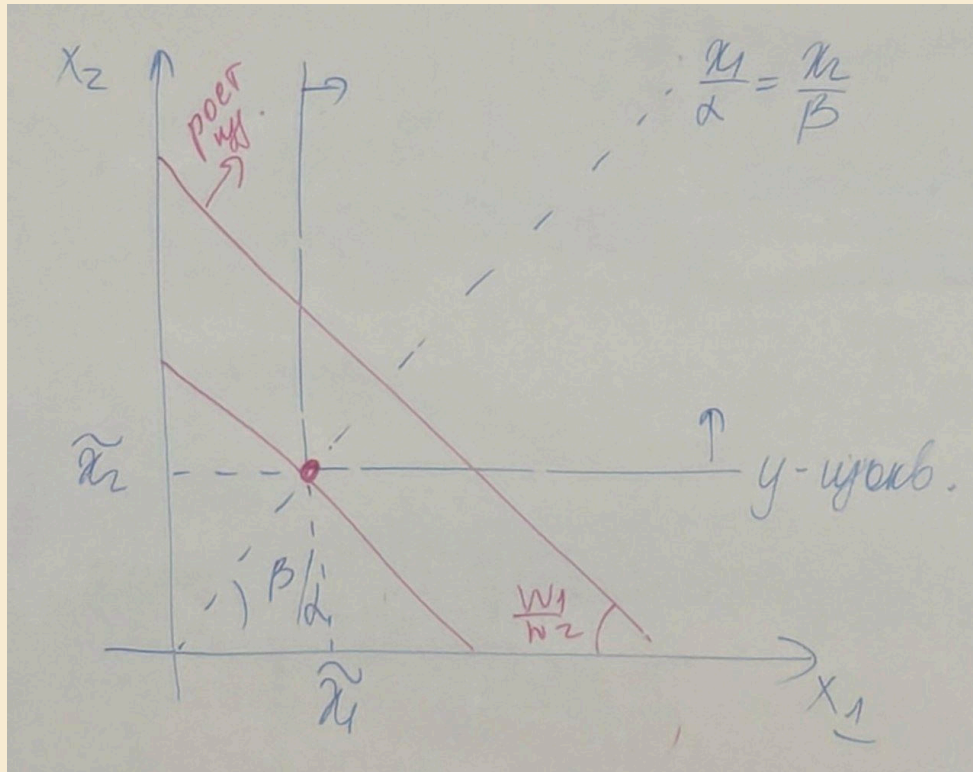 x₂
рост
x₁/α = x₂/β
x̃₂
y-изокв.
β/α
w₁/w₂
x̃₁
x₁